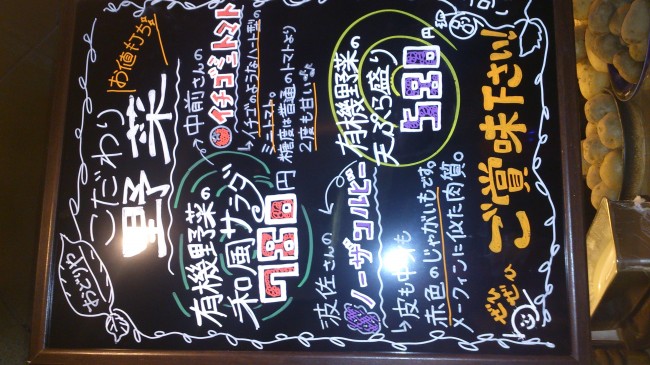 なごりや
こだわり
野菜
お値打ち
有機野菜の
和風サラダ
780円
中前さんの
イチゴミニトマト
→イチゴのようなハート型の
ミニトマト。
糖度は普通のトマトより
2度も甘い
波佐さんの
ノーザンルビー
→皮も中身も
赤色のじゃがいもです。
メークィンに似た肉質。
有機野菜の
天ぷら盛り
円
ぜひぜひ
ご賞味下さい!